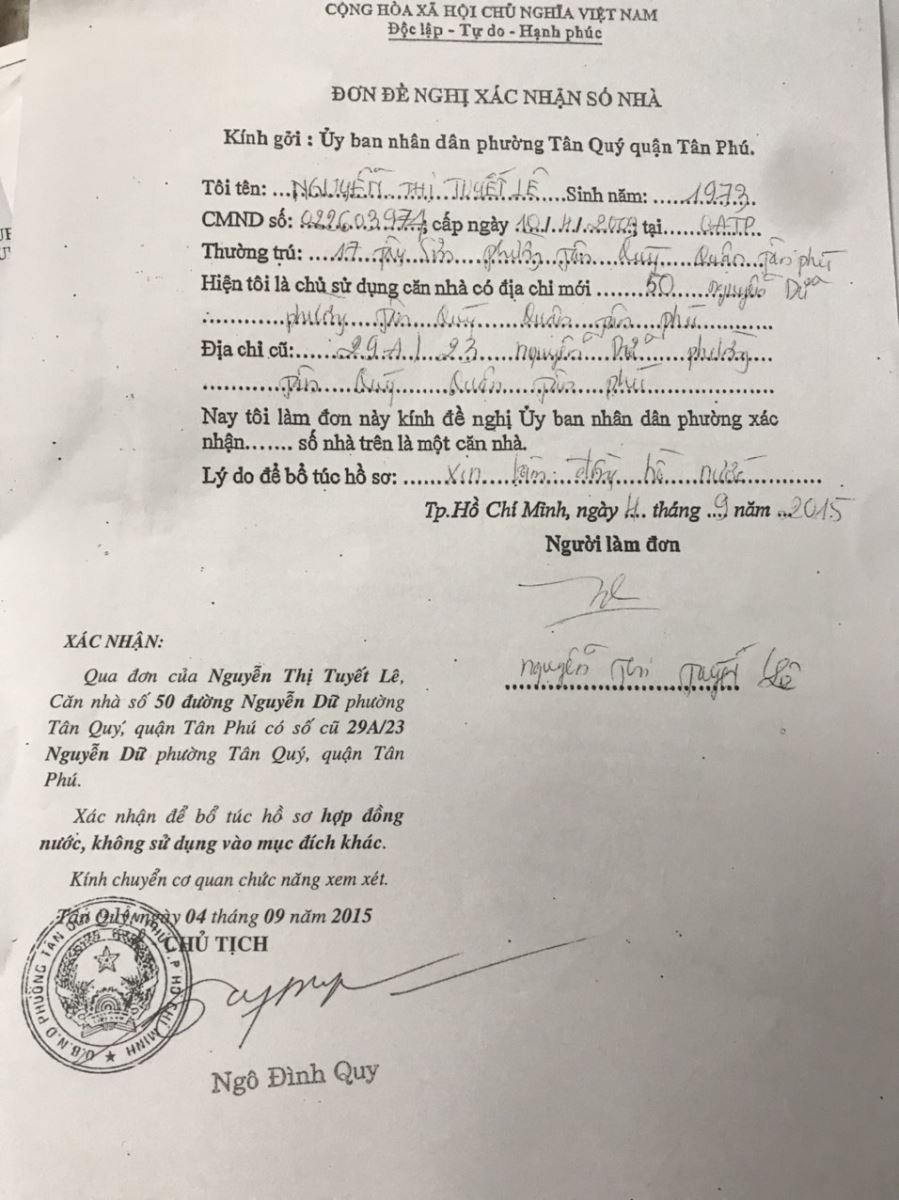 CỘNG HÒA XÃ HỘI CHỦ NGHĨA VIỆT NAM
Độc lập - Tự do - Hạnh phúc
ĐƠN ĐỀ NGHỊ XÁC NHẬN SỐ NHÀ
Kính gởi : Ủy ban nhân dân phường Tân Quý quận Tân Phú.
Tôi tên: ...NGUYỄN THỊ TUYẾT LÊ...Sinh năm: ......1973
CMND số: 022603971; cấp ngày 10/11/2003; tại ......CATP
Thường trú: ....17 Tây Sơn phường Tân Quý Quận Tân phú
Hiện tôi là chủ sử dụng căn nhà có địa chỉ mới ........50 Nguyễn Dữ
phường Tân Quý Quận Tân phú
Địa chỉ cũ:......29A/23 Nguyễn Dữ phường....
Tân Quý Quận Tân phú
Nay tôi làm đơn này kính đề nghị Ủy ban nhân dân phường xác
nhận....... số nhà trên là một căn nhà.
Lý do để bổ túc hồ sơ: ......xin làm đồng hồ nước
Tp.Hồ Chí Minh, ngày 4.. tháng ..9 năm ...2015
Người làm đơn
Nguyễn Thị Tuyết Lê
XÁC NHẬN:
Qua đơn của Nguyễn Thị Tuyết Lê,
Căn nhà số 50 đường Nguyễn Dữ phường
Tân Quý, quận Tân Phú có số cũ 29A/23
Nguyễn Dữ phường Tân Quý, quận Tân
Phú.
Xác nhận để bổ túc hồ sơ hợp đồng
nước, không sử dụng vào mục đích khác.
Kính chuyển cơ quan chức năng xem xét.
Tân Quý, ngày 04 tháng 09 năm 2015
CHỦ TỊCH
U.B.N.D PHƯỜNG TÂN QUÝ T.P HỒ CHÍ MINH
Ngô Đình Quy